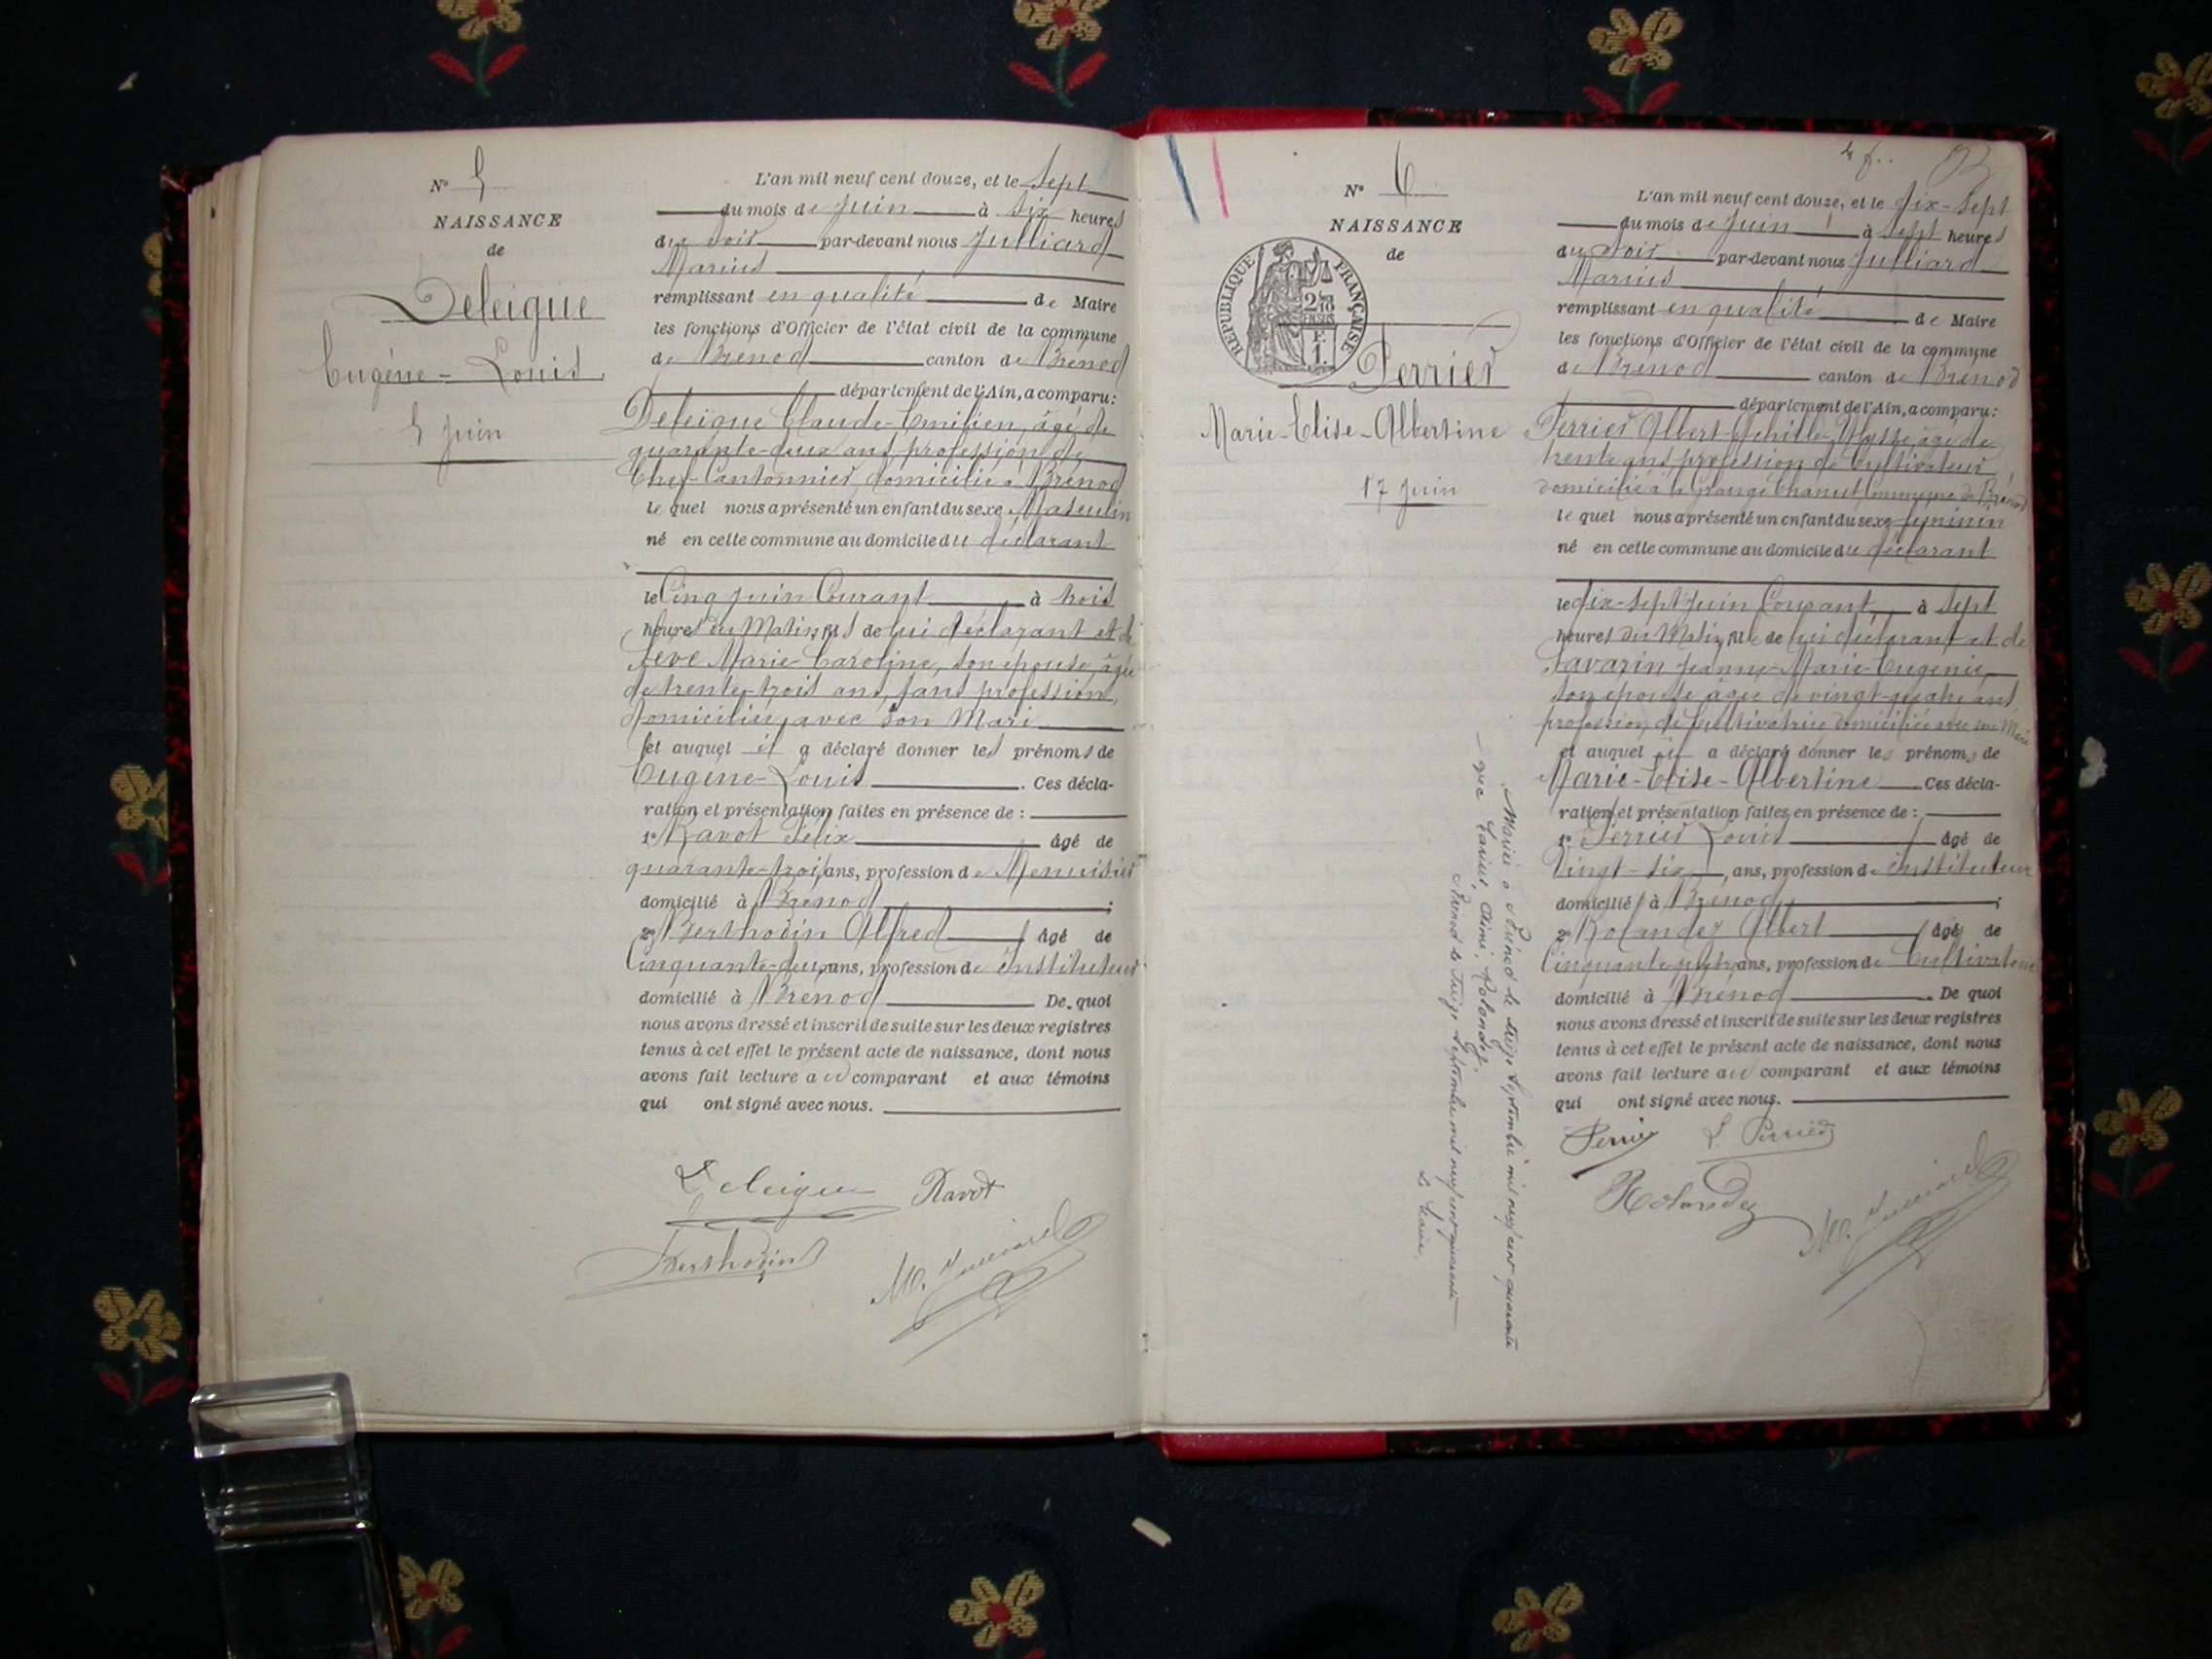 N° 5
NAISSANCE
de
Deleigue
Eugène-Louis
5 Juin
L'an mil neuf cent douze, et le Sept
du mois de Juin à Six heures
du Soir par-devant nous Julliard
Marius
remplissant en qualité de Maire
les fonctions d'Officier de l'état civil de la commune
de Brénod canton de Brénod
département de l'Ain, a comparu:
Deleigue Claude-Emilien, âgé de
quarante-deux ans profession de
Chef-Cantonnier, domicilié à Brénod
le quel nous a présenté un enfant du sexe Masculin
né en cette commune au domicile du déclarant
le Cinq Juin Courant à trois
heures du Matin, fils de lui déclarant et de
Sève Marie-Caroline, son épouse, âgée
de trente-trois ans, sans profession,
domiciliée avec son Mari
et auquel il a déclaré donner les prénoms de
Eugène-Louis. Ces décla-
ration et présentation faites en présence de :
1° Ravot Félix âgé de
quarante-trois ans, profession de Menuisier
domicilié à Brénod ;
2° Berthodin Alfred âgé de
Cinquante-deux ans, profession de instituteur
domicilié à Brénod. De quoi
nous avons dressé et inscrit de suite sur les deux registres
tenus à cet effet le présent acte de naissance, dont nous
avons fait lecture au comparant et aux témoins
qui ont signé avec nous.
Deleigue Ravot
Berthodin M. Julliard
N° 6
NAISSANCE
de
RÉPUBLIQUE FRANÇAISE
Perrier
Marie-Elise-Albertine
17 Juin
Mariée à Brénod le treize septembre mil neuf cent quarante
avec Marius, Aimé, Rolandez.
Brénod le treize septembre mil neuf cent quarante
Le Maire
L'an mil neuf cent douze, et le dix-Sept
du mois de Juin à Sept heures
du Soir par-devant nous Julliard
Marius
remplissant en qualité de Maire
les fonctions d'Officier de l'état civil de la commune
de Brénod canton de Brénod
département de l'Ain, a comparu:
Perrier Albert-Achille-Ulysse, âgé de
trente ans profession de Cultivateur
domicilié à la Grange Chanut Commune de Brénod
le quel nous a présenté un enfant du sexe féminin
né en cette commune au domicile du déclarant
le dix-Sept Juin Courant à Sept
heures du Matin, fille de lui déclarant et de
Savarin Jeanne-Marie-Eugénie,
son épouse âgée de vingt-quatre ans
profession de Cultivatrice domiciliée avec son Mari
et auquel il a déclaré donner les prénoms de
Marie-Elise-Albertine Ces décla-
ration et présentation faites en présence de :
1° Perrier Louis âgé de
Vingt-six, ans, profession de instituteur
domicilié à Brénod ;
2° Rolandez Albert âgé de
Cinquante ans, profession de Cultivateur
domicilié à Brénod. De quoi
nous avons dressé et inscrit de suite sur les deux registres
tenus à cet effet le présent acte de naissance, dont nous
avons fait lecture au comparant et aux témoins
qui ont signé avec nous.
Perrier L Perrier
Rolandez M. Julliard